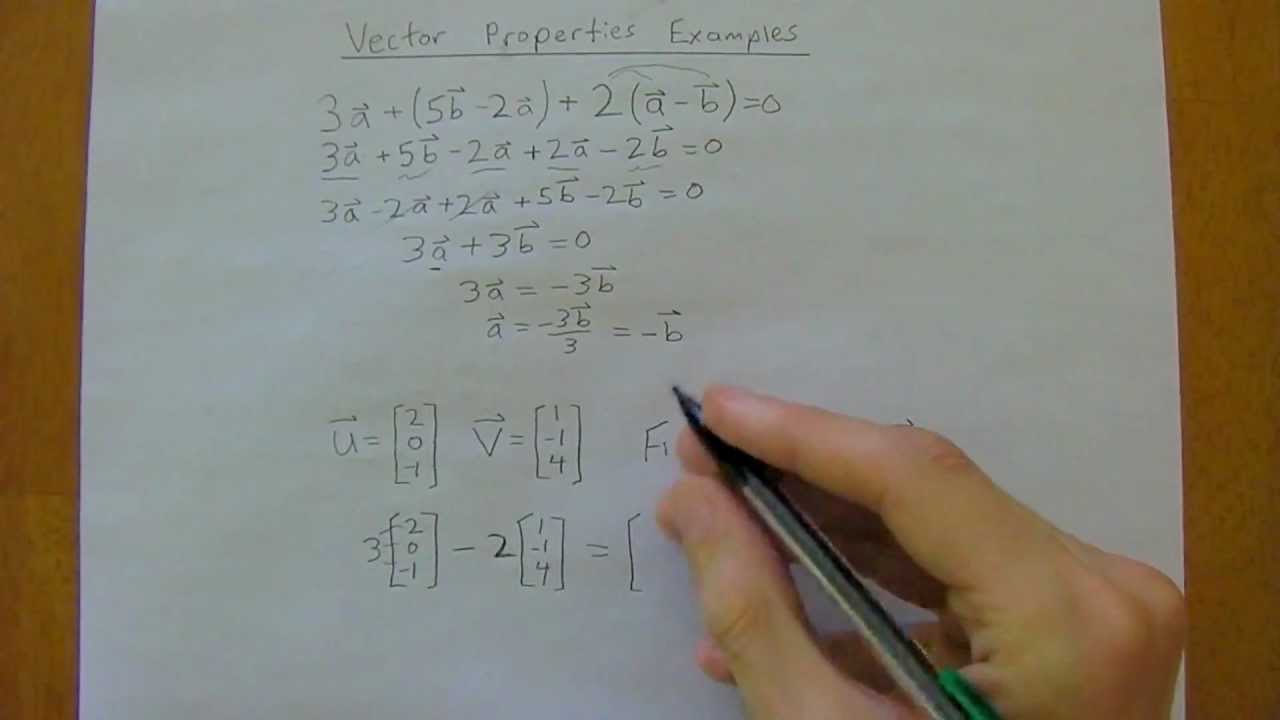 Vector Properties Examples
3a⃗ + (5b⃗ - 2a⃗) + 2(a⃗ - b⃗) = 0
3a⃗ + 5b⃗ - 2a⃗ + 2a⃗ - 2b⃗ = 0
3a⃗ - 2a⃗ + 2a⃗ + 5b⃗ - 2b⃗ = 0
3a⃗ + 3b⃗ = 0
3a⃗ = -3b⃗
a⃗ = -3b⃗/3 = -b⃗
u⃗ = [2 0 -1] v⃗ = [1 -1 4]
3[2 0 -1] - 2[1 -1 4] = [